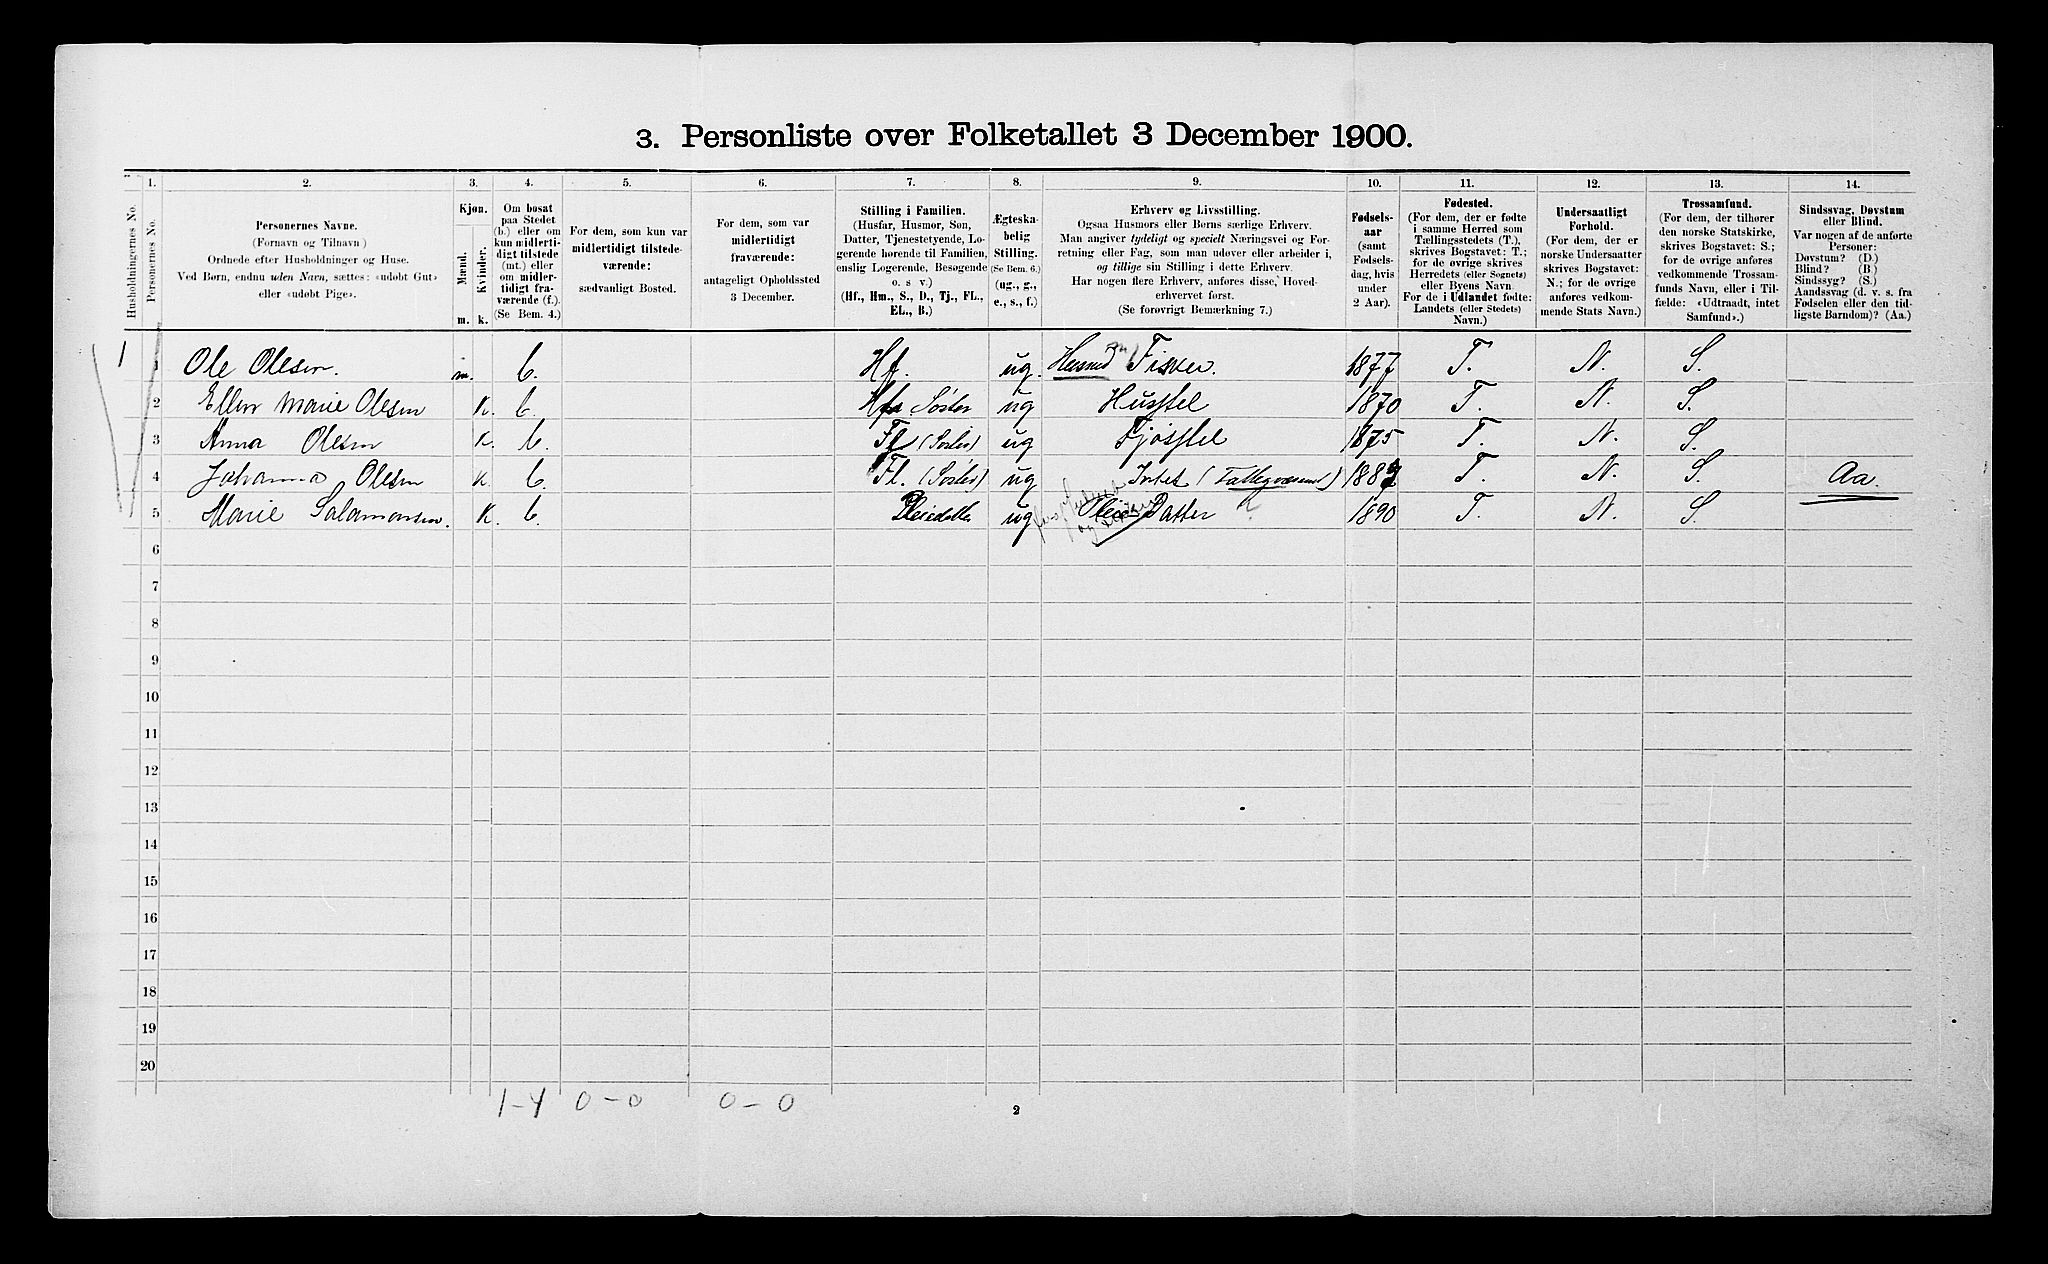 3. Personliste over Folketallet 3 December 1900.
Husholdningernes No.
1. Personernes No.
2. Personernes Navne. (Fornavn og Tilnavn) Ordnede efter Husholdninger og Huse. Ved Børn, endnu uden Navn, sættes: «udøbt Gut» eller «udøbt Pige».
3. Kjøn. Mænd. m. Kvinder. k.
4. Om bosat paa Stedet (b.) eller om kun midlertidigt tilstede (mt.) eller om midlertidigt fraværende (f.) (Se Bem. 4.)
5. For dem, som kun var midlertidigt tilstedeværende: sædvanligt Bosted.
6. For dem, som var midlertidigt fraværende: antageligt Opholdssted 3 December.
7. Stilling i Familien. (Husfar, Husmor, Søn, Datter, Tjenestetyende, Logerende hørende til Familien, enslig Logerende, Besøgende o. s v.) (Hf., Hm., S., D., Tj., FL., EL., B.)
8. Ægteskabelig Stilling. (Se Bem. 6.) (ug., g., e., s., f.)
9. Erhverv og Livsstilling. Ogsaa Husmors eller Børns særlige Erhverv. Man angiver tydeligt og specielt Næringsvei og Forretning eller Fag, som man udøver eller arbeider i, og tillige sin Stilling i dette Erhverv. Har nogen flere Erhverv, anføres disse, Hovederhvervet først. (Se forøvrigt Bemærkning 7.)
10. Fødselsaar (samt Fødselsdag, hvis under 2 Aar).
11. Fødested. (For dem, der er fødte i samme Herred som Tællingsstedets (T.), skrives Bogstavet: T.; for de øvrige skrives Herredets (eller Sognets) eller Byens Navn. For de i Udlandet fødte: Landets (eller Stedets) Navn.)
12. Undersaatligt Forhold. (For dem, der er norske Undersaatter skrives Bogstavet: N.; for de øvrige anføres vedkommende Stats Navn.)
13. Trossamfund. (For dem, der tilhører den norske Statskirke, skrives Bogstavet: S.; for de øvrige anføres vedkommende Trossamfunds Navn, eller i Tilfælde: «Udtraadt, intet Samfund».)
14. Sindssvag, Døvstum eller Blind. Var nogen af de anførte Personer: Døvstum? (D.) Blind? (B.) Sindssyg? (S.) Aandssvag (d. v. s. fra Fødselen eller den tidligste Barndom)? (Aa.)
1 1 Ole Olesen. m. b. Hf. ug. Fisker. 1877 T. N. S.
2 Ellen Marie Olesen K. b. Søster ug Husstel 1870 T. N. S.
3 Anna Olesen K. b. Fl (Søster) ug Fjøsstel 1875 T. N. S.
4 Johanna Olesen K b. Fl. (Søster) ug Intet (Fattigvæsend) 1882 T. N. S. Aa.
5 Marie Salamonsen. K. b. Pleiedatter ug Pleie Datter 1890 T. N. S.
6
7
8
9
10
11
12
13
14
15
16
17
18
19
20
1-4 0-0 0-0
2